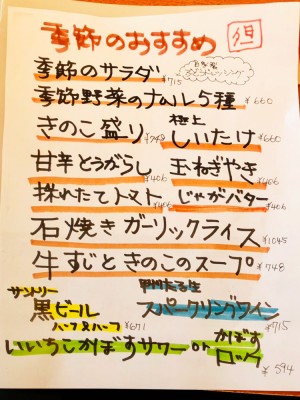 季節のおすすめ
季節のサラダ ¥715
自家製
ドレッシング
季節野菜のナムル5種 ¥660
きのこ盛り ¥748 極上しいたけ ¥660
甘辛とうがらし ¥406 玉ねぎやき ¥406
採れたてトマト ¥406 じゃがバター ¥406
石焼きガーリックライス ¥1045
牛すじときのこのスープ ¥748
サントリー
黒ビール スパークリングワイン
ハーフ&ハーフ ¥671 ¥715
いいちこかぼすサワー or かぼすロック
¥594